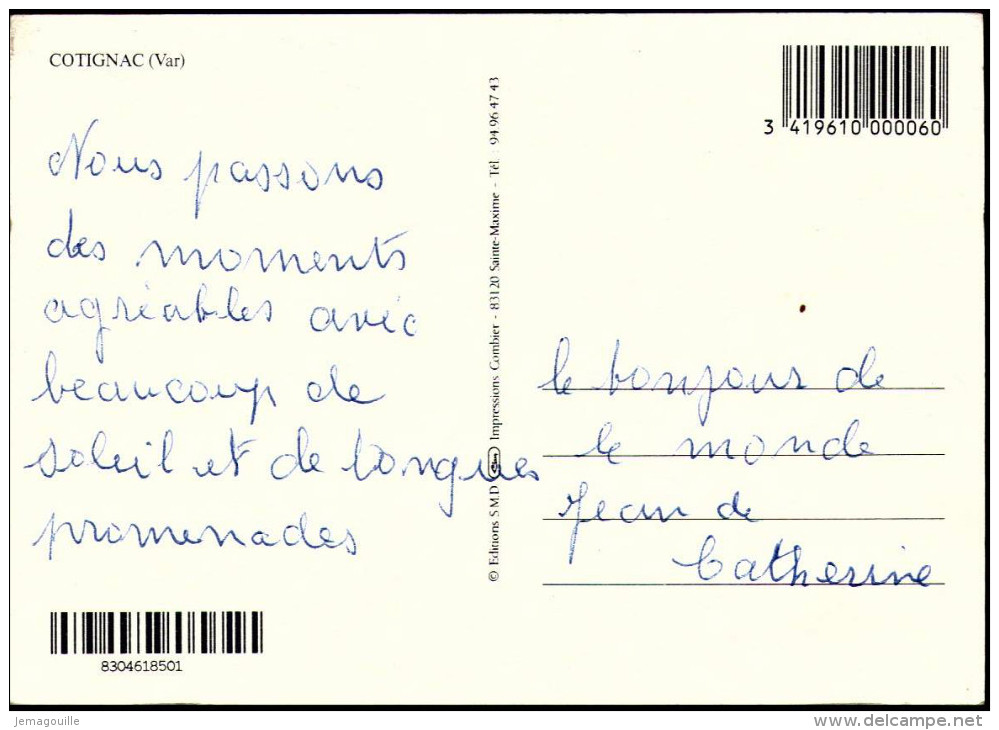 COTIGNAC (Var)
Nous passons
des moments
agréables avec
beaucoup de
soleil et de longues
promenades
8304618501
© Editions S.M.D. Impressions Combier - 83120 Sainte-Maxime - Tél. : 94 96 47 43
3 419610 000060
le bonjour de
le monde
Jean de
Catherine
Jemagouille
www.delcampe.net